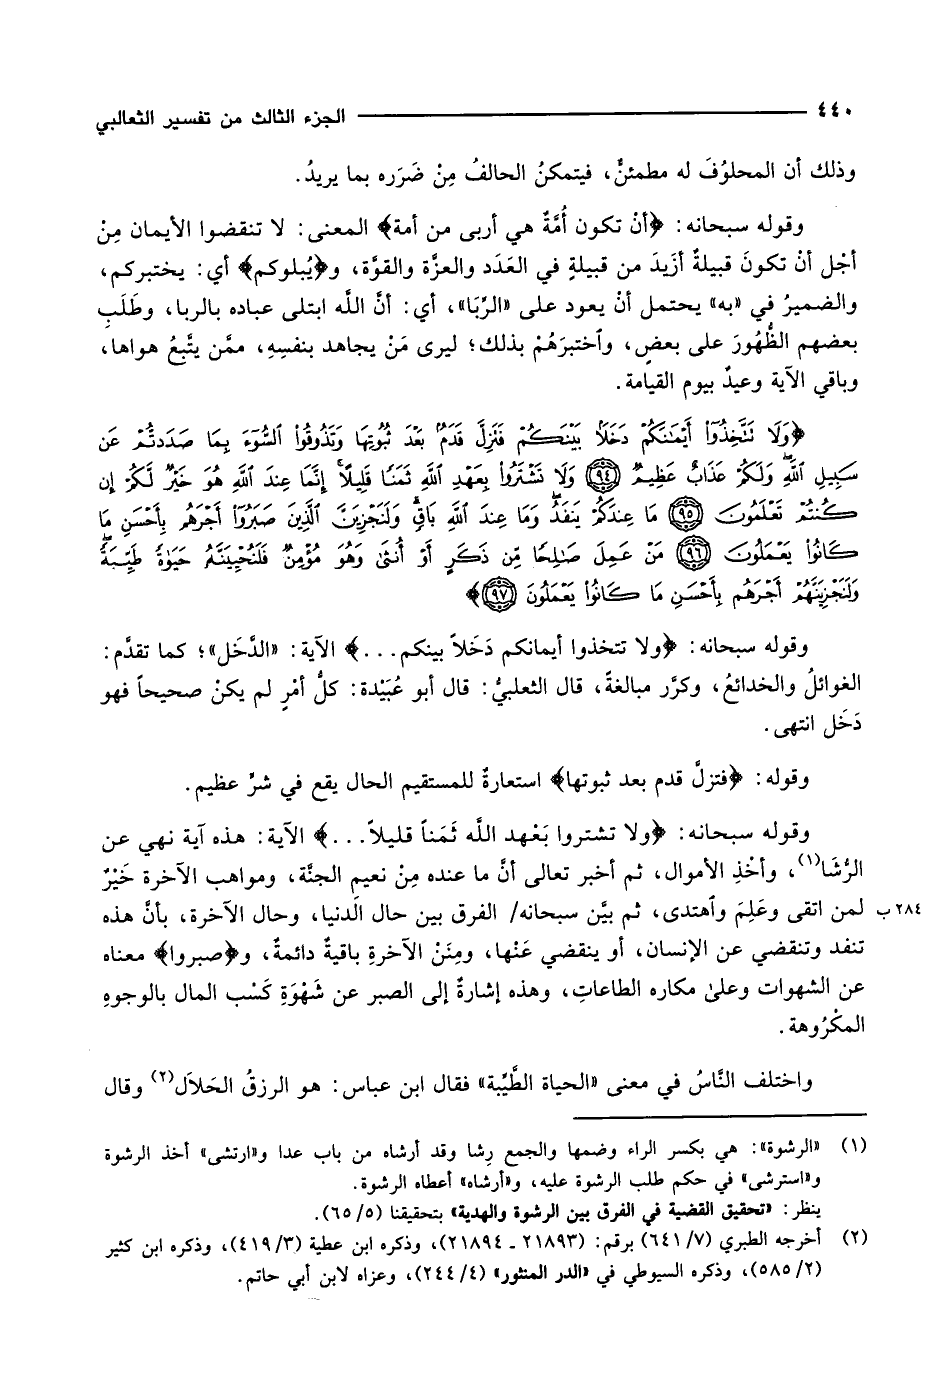 ٤٤٠ ــــــــــــــــــــــــــــــــ الجزء الثالث من تفسير الثعالبي
وذلك أن المحلوُفَ له مطمئنٌّ، فيتمكنُ الحالفُ مِنْ ضَرَره بما يريدُ.
وقوله سبحانه: ﴿أنْ تكون أُمَّةٌ هي أربى من أمة﴾ المعنى: لا تنقضوا الأيمان مِنْ
أجْل أنْ تكونَ قبيلةٌ أزيدَ من قبيلةٍ في العَدَد والعزَّة والقوَّة، و﴿يُبلوكم﴾ أي: يختبركم،
والضميرُ في «به» يحتمل أنْ يعود على «الرِّبَا»، أي: أنَّ اللَّه ابتلى عباده بالربا، وطَلَبِ
بعضهم الظُّهُورَ على بعضٍ، وٱختبرَهُمْ بذلك؛ ليرى مَنْ يجاهد بنفسِهِ، ممَّن يتَّبعُ هواها،
وباقي الآية وعيدٌ بيوم القيامة.
﴿وَلَا تَتَّخِذُوٓا۟ أَيْمَٰنَكُمْ دَخَلًۢا بَيْنَكُمْ فَتَزِلَّ قَدَمٌۢ بَعْدَ ثُبُوتِهَا وَتَذُوقُوا۟ ٱلسُّوٓءَ بِمَا صَدَدتُّمْ عَن
سَبِيلِ ٱللَّهِ ۖ وَلَكُمْ عَذَابٌ عَظِيمٌ ﴿٩٤﴾ وَلَا تَشْتَرُوا۟ بِعَهْدِ ٱللَّهِ ثَمَنًا قَلِيلًا ۚ إِنَّمَا عِندَ ٱللَّهِ هُوَ خَيْرٌ لَّكُمْ إِن
كُنتُمْ تَعْلَمُونَ ﴿٩٥﴾ مَا عِندَكُمْ يَنفَدُ ۖ وَمَا عِندَ ٱللَّهِ بَاقٍ ۗ وَلَنَجْزِيَنَّ ٱلَّذِينَ صَبَرُوٓا۟ أَجْرَهُم بِأَحْسَنِ مَا
كَانُوا۟ يَعْمَلُونَ ﴿٩٦﴾ مَنْ عَمِلَ صَٰلِحًا مِّن ذَكَرٍ أَوْ أُنثَىٰ وَهُوَ مُؤْمِنٌ فَلَنُحْيِيَنَّهُۥ حَيَوٰةً طَيِّبَةً ۖ
وَلَنَجْزِيَنَّهُمْ أَجْرَهُم بِأَحْسَنِ مَا كَانُوا۟ يَعْمَلُونَ ﴿٩٧﴾﴾
وقوله سبحانه: ﴿ولا تتخذوا أيمانكم دَخَلاً بينكم...﴾ الآية: «الدَّخَل»؛ كما تقدَّم:
الغوائلُ والخدائعُ، وكرَّر مبالغةً، قال الثعلبيُّ: قال أبو عُبَيْدة: كلُّ أمْرٍ لم يكنْ صحيحاً فهو
دَخَل انتهى.
وقوله: ﴿فتزلَّ قدم بعد ثبوتها﴾ استعارةٌ للمستقيم الحال يقع في شرٍّ عظيم.
وقوله سبحانه: ﴿ولا تشتروا بَعْهد اللَّه ثَمَناً قليلاً...﴾ الآية: هذه آية نهي عن
الرُّشَا(١)، وأخْذِ الأموال، ثم أخبر تعالى أنَّ ما عنده مِنْ نعيم الجنَّة، ومواهب الآخرة خَيْرٌ
لمن اتقى وعَلِمَ وٱهتدى، ثم بيَّن سبحانه/ الفرق بين حال الَدنيا، وحال الآخرة، بأنَّ هذه ٢٨٤ ب
تنفد وتنقضي عن الإنسان، أو ينقضي عَنْها، ومِنَنْ الآخرةِ باقيةٌ دائمةٌ، و﴿صبروا﴾ معناه
عن الشهوات وعلىٰ مكاره الطاعاتِ، وهذه إشارةٌ إلى الصبر عن شَهْوَةِ كَسْب المال بالوجوهِ
المكْرُوهة.
واختلف النَّاسُ في معنى «الحياة الطَّيِّبة» فقال ابن عباس: هو الرزقُ الحَلاَل(٢) وقال
(١) «الرشوة»: هي بكسر الراء وضمها والجمع رِشا وقد أرشاه من باب عدا و«ارتشى» أخذ الرشوة
و«استرشى» في حكم طلب الرشوة عليه، و«أرشاه» أعطاه الرشوة.
ينظر: «تحقيق القضية في الفرق بين الرشوة والهدية» بتحقيقنا (٦٥/٥).
(٢) أخرجه الطبري (٦٤١/٧) برقم: (٢١٨٩٣ ـ ٢١٨٩٤)، وذكره ابن عطية (٤١٩/٣)، وذكره ابن كثير
(٥٨٥/٢)، وذكره السيوطي في «الدر المنثور» (٢٤٤/٤)، وعزاه لابن أبي حاتم.